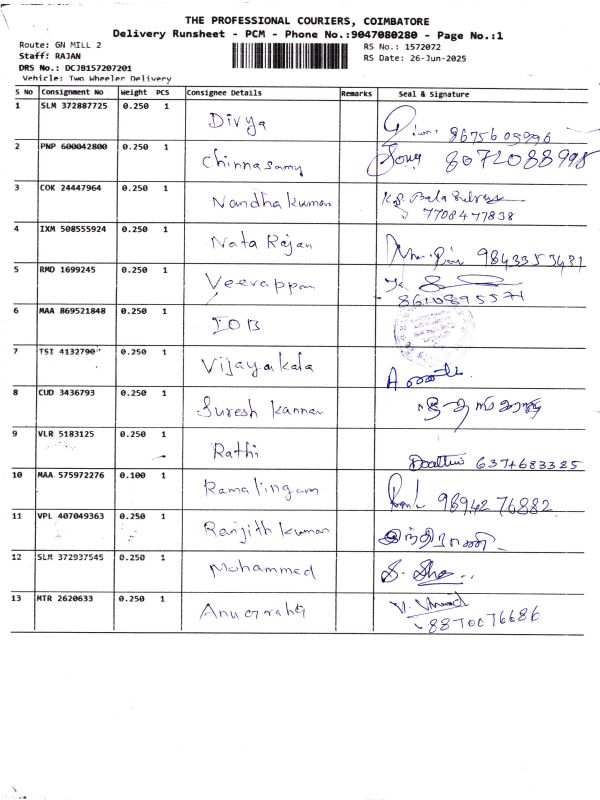 THE PROFESSIONAL COURIERS, COIMBATORE
Delivery Runsheet - PCM - Phone No.:9047080280 - Page No.:1
Route: GN MILL 2
Staff: RAJAN
DRS No.: DCJB157207201
Vehicle: Two Wheeler Delivery
RS No.: 1572072
RS Date: 26-Jun-2025
S No Consignment No Weight PCS Consignee Details Remarks Seal & Signature
1 SLM 372887725 0.250 1 Divya 8675605996
2 PNP 600042800 0.250 1 Chinnasamy 8072088998
3 COK 24447964 0.250 1 Nandha kumar
7708477838
4 IXM 508555924 0.250 1 Nata Rajan 9843353431
5 RMD 1699245 0.250 1 Veerappan
8610895571
6 MAA 869521848 0.250 1 IOB
7 TSI 4132790 0.250 1 Vijaya kala
8 CUD 3436793 0.250 1 Suresh Kannan
9 VLR 5183125 0.250 1 Rathi 6374683325
10 MAA 575972276 0.100 1 Ramalingam 9894276882
11 VPL 407049363 0.250 1 Ranjith kumar இந்திராணி
12 SLM 372937545 0.250 1 Mohammed
13 MTR 2620633 0.250 1
8870076686